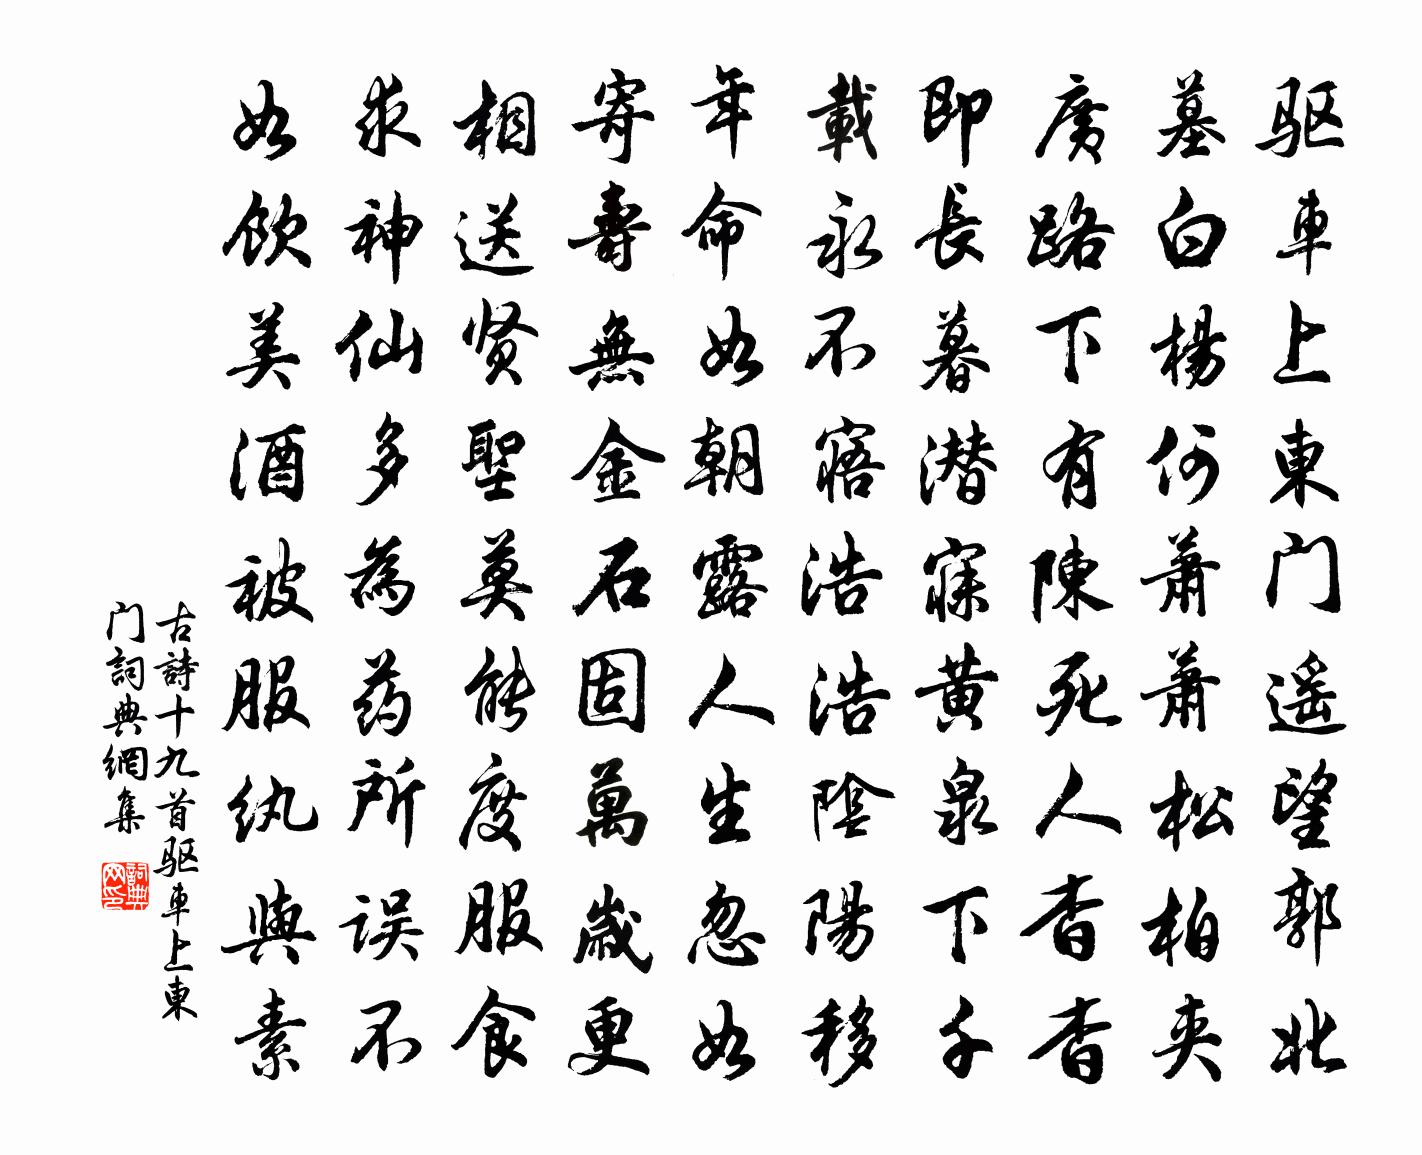 驱車上東门遥望郭北
墓白楊何蕭蕭松柏夹
廣路下有陳死人杳杳
即長暮潜寐黄泉下千
載永不寤浩浩陰陽移
年命如朝露人生忽如
寄壽無金石固萬歲更
相送贤聖莫能度服食
求神仙多為药所误不
如飲美酒被服纨與素
古詩十九首驱車上東
门詞典網集
詞典
网印